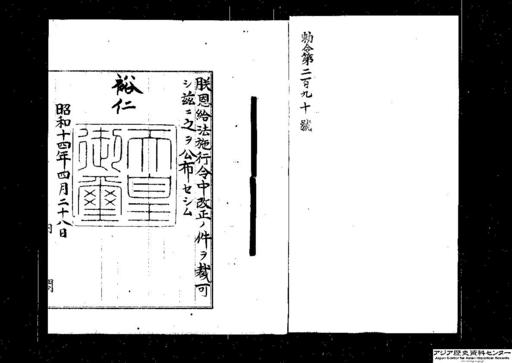 勅令第二百九十號
朕恩給法施行令中改正ノ件ヲ裁可
シ茲ニ之ヲ公布セシム
裕仁
天皇
御璽
昭和十四年四月二十八日
内閣
アジア歴史資料センター
Japan Center for Asian Historical Records